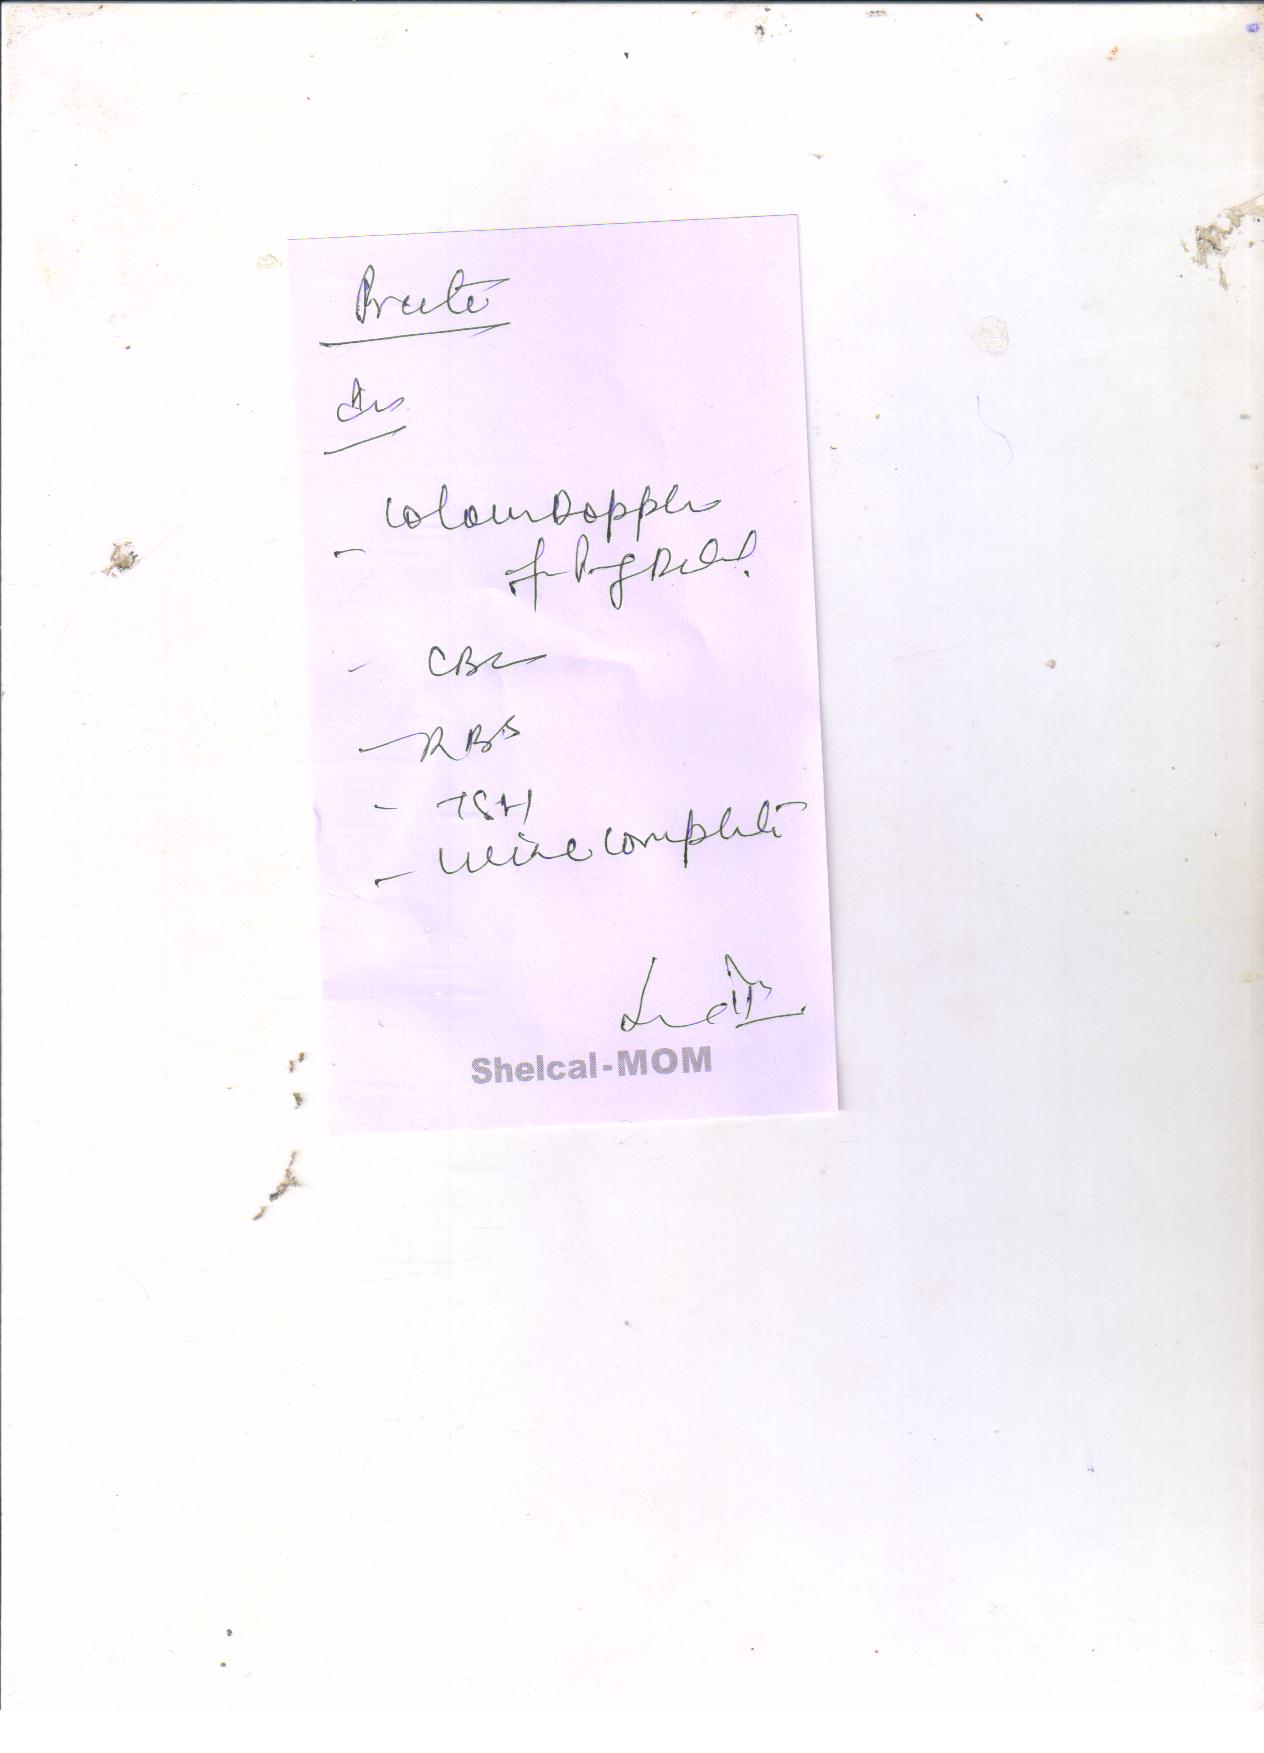 Preeti
Adv
- Colour Doppler
for
- CBC
- RBS
- TSH
- Urine complete
Shelcal-MOM